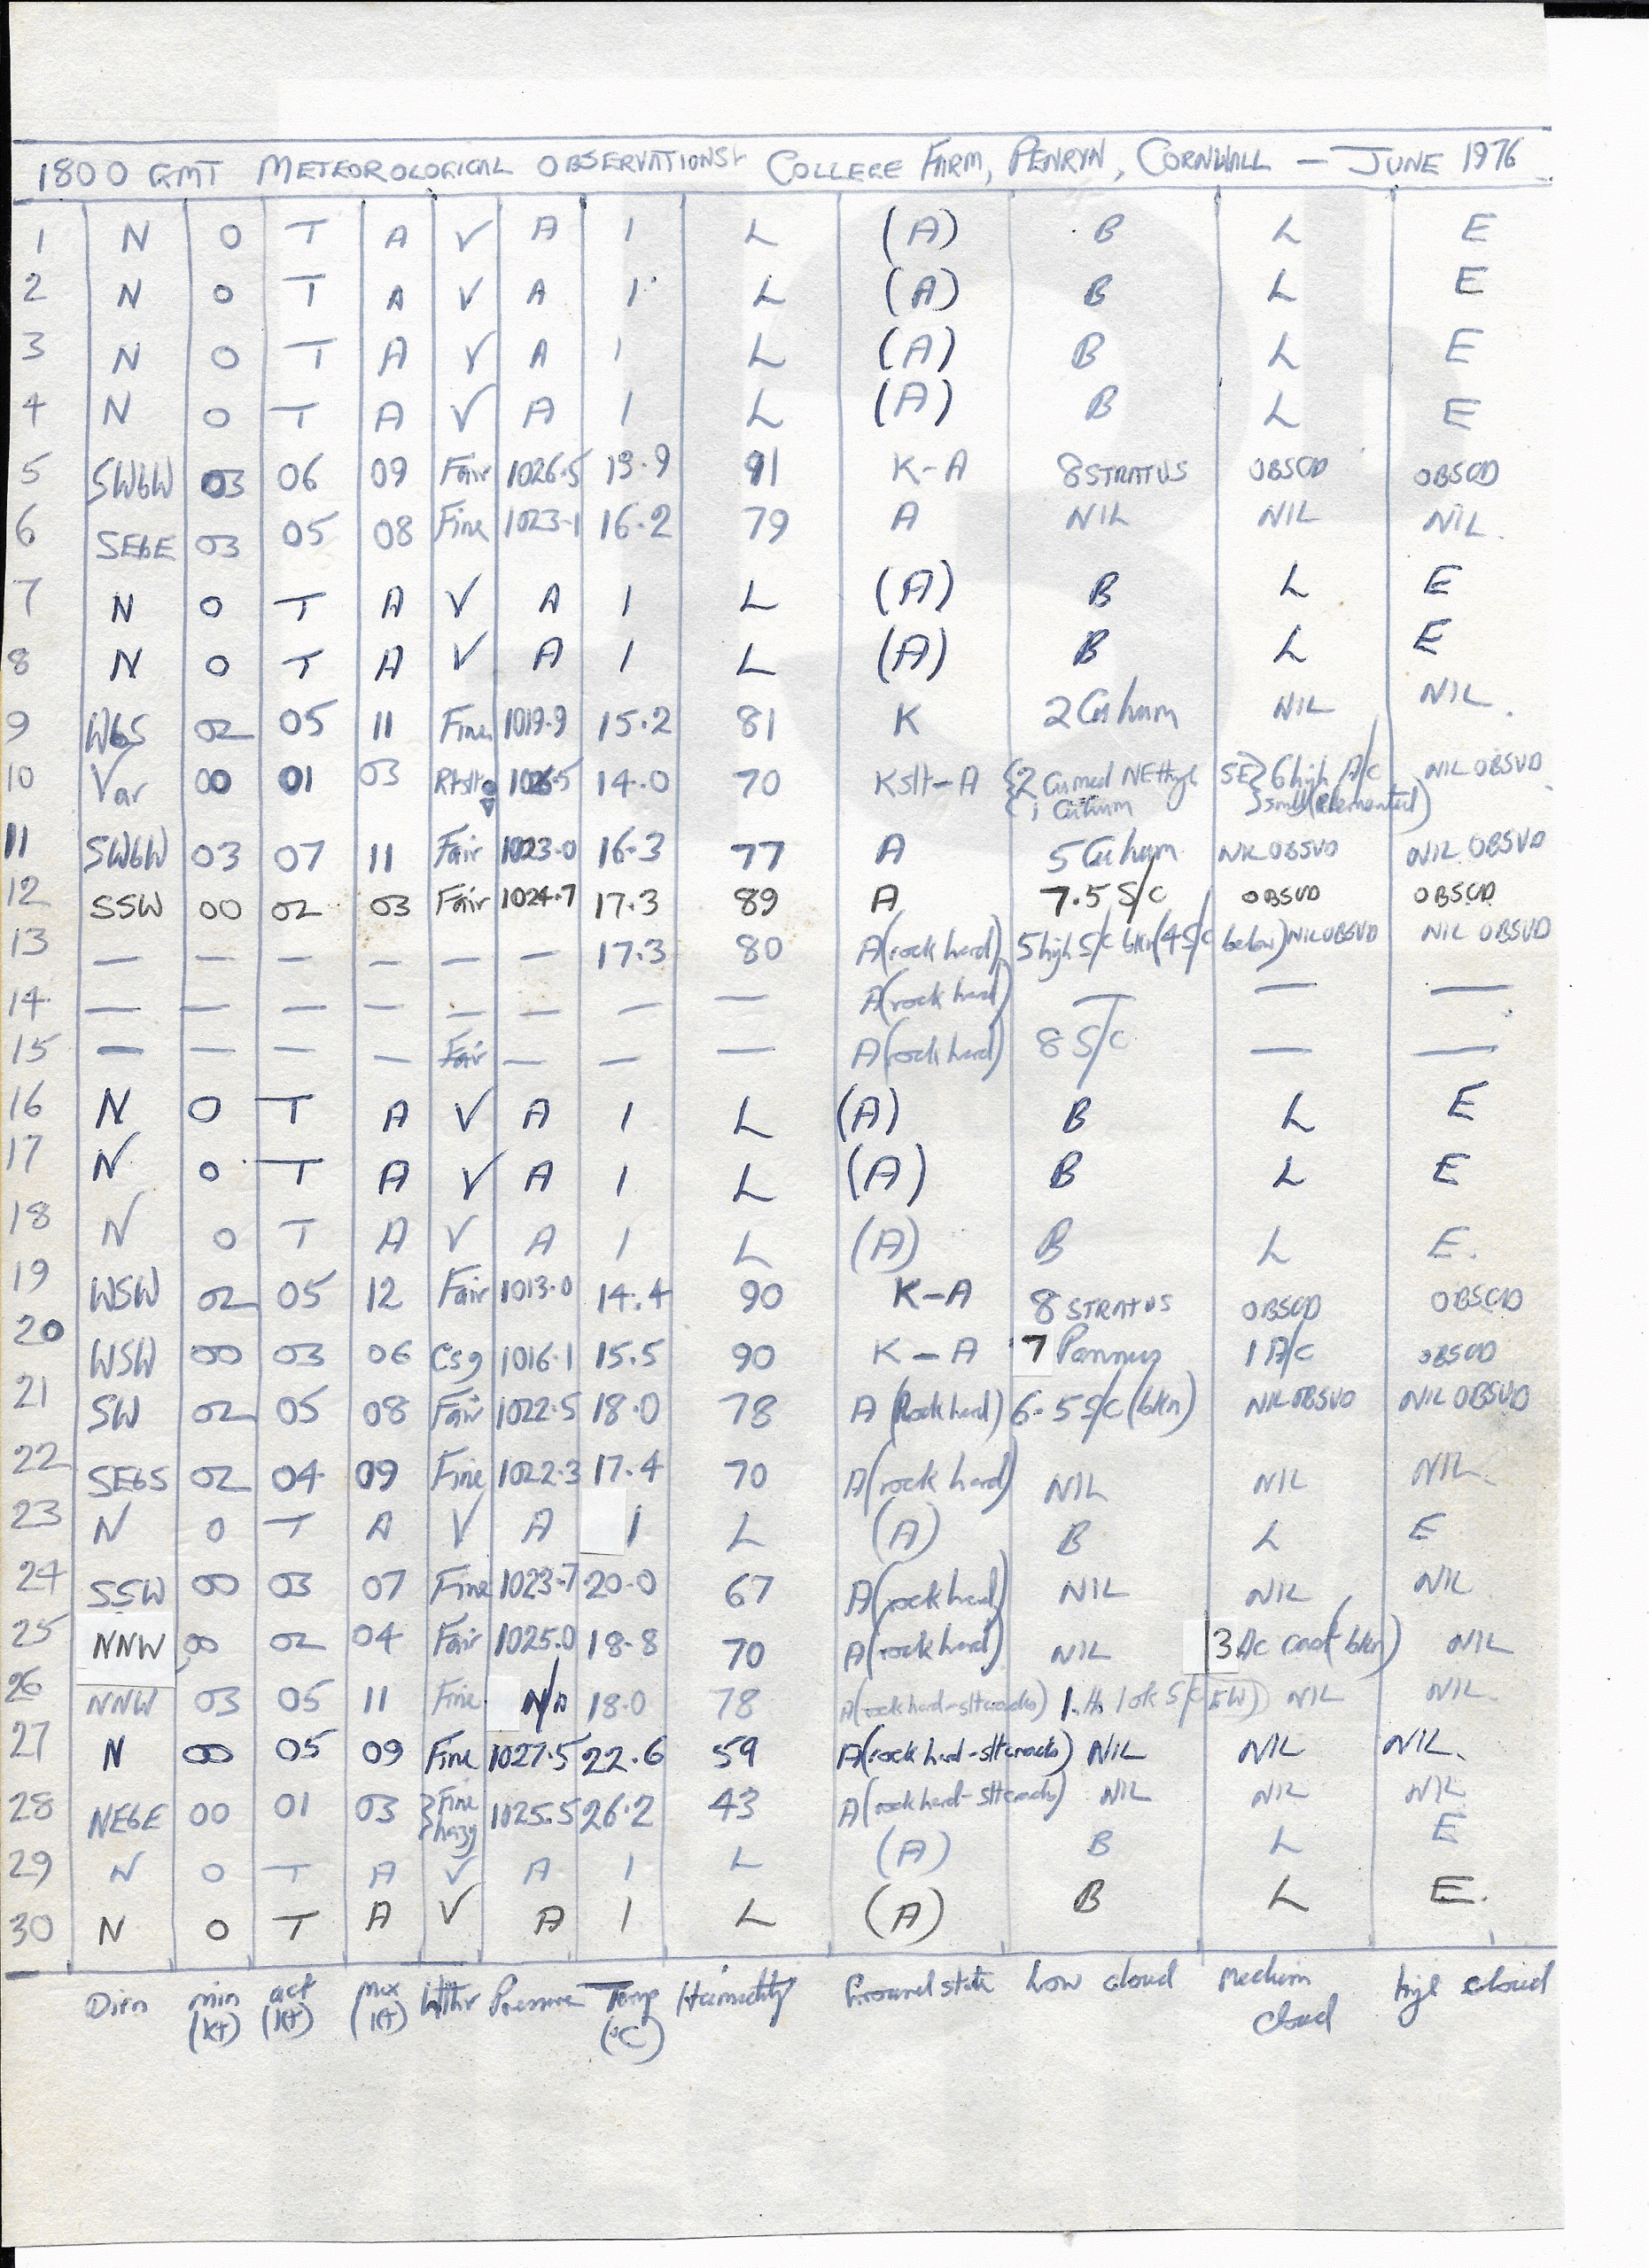 1800 GMT METEOROLOGICAL OBSERVATIONS COLLEGE FARM, PENRYN, CORNWALL — JUNE 1976
1 N O T A V A I L (A) B L E
2 N O T A V A I L (A) B L E
3 N O T A V A I L (A) B L E
4 N O T A V A I L (A) B L E
5 SWbW 03 06 09 Fair 1026.5 13.9 91 K-A 8 STRATUS OBSCD OBSCD
6 SEbE 03 05 08 Fine 1023.1 16.2 79 A NIL NIL NIL.
7 N O T A V A I L (A) B L E
8 N O T A V A I L (A) B L E
9 WbS 02 05 11 Fine 1019.9 15.2 81 K 2 Cu hum NIL NIL.
10 Var 00 01 03 1026.5 14.0 70 Kslt-A {2 Cu med NE thgl SE} 6 high A/C NIL OBSVD
1 Cu hum small (elemented)
11 SWbW 03 07 11 Fair 1023.0 16.3 77 A 5 Cu hum NIL OBSVD NIL OBSVD
12 SSW 00 02 03 Fair 1024.7 17.3 89 A 7.5 S/C OBSVD OBSCD
13 — — — — — — 17.3 80 A (rock hard) 5 high S/C bkn (4 S/C below) NIL OBSVD NIL OBSVD
14 — — — — — — — — A (rock hard) — — —
15 — — — — Fair — — — A (rock hard) 8 S/C — —
16 N O T A V A I L (A) B L E
17 N O T A V A I L (A) B L E
18 N O T A V A I L (A) B L E.
19 WSW 02 05 12 Fair 1013.0 14.4 90 K-A 8 STRATUS OBSCD OBSCD
20 WSW 00 03 06 Csg 1016.1 15.5 90 K-A 7 Pannus 1 A/C OBSCD
21 SW 02 05 08 Fair 1022.5 18.0 78 A (Rock hard) 6.5 S/C (bkn) NIL OBSVD NIL OBSVD
22 SEbS 02 04 09 Fine 1022.3 17.4 70 A (rock hard) NIL NIL NIL.
23 N O T A V A I L (A) B L E
24 SSW 00 03 07 Fine 1023.7 20.0 67 A (rock hard) NIL NIL NIL
25 NNW 00 02 04 Fair 1025.0 18.8 70 A (rock hard) NIL 3 Ac cast (bkn) NIL
26 NNW 03 05 11 Fine N/A 18.0 78 A (rock hard-slt cracks) S/C NIL NIL.
27 N 00 05 09 Fine 1027.5 22.6 59 A (rock hard-slt cracks) NIL NIL NIL.
28 NEbE 00 01 03 {Fine hazy 1025.5 26.2 43 A (rock hard-slt cracks) NIL NIL NIL
29 N O T A V A I L (A) B L E
30 N O T A V A I L (A) B L E.
Dirn min (kt) act (kt) max (kt) Wthr Pressure Temp (°C) Humidity Ground state Low cloud Medium cloud high cloud